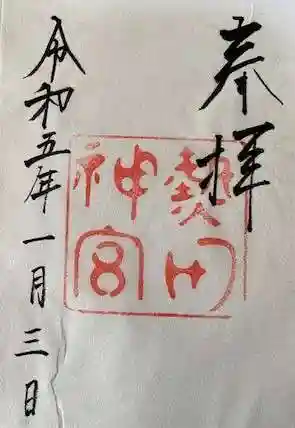 奉拝
熱田
神宮
令和五年一月三日